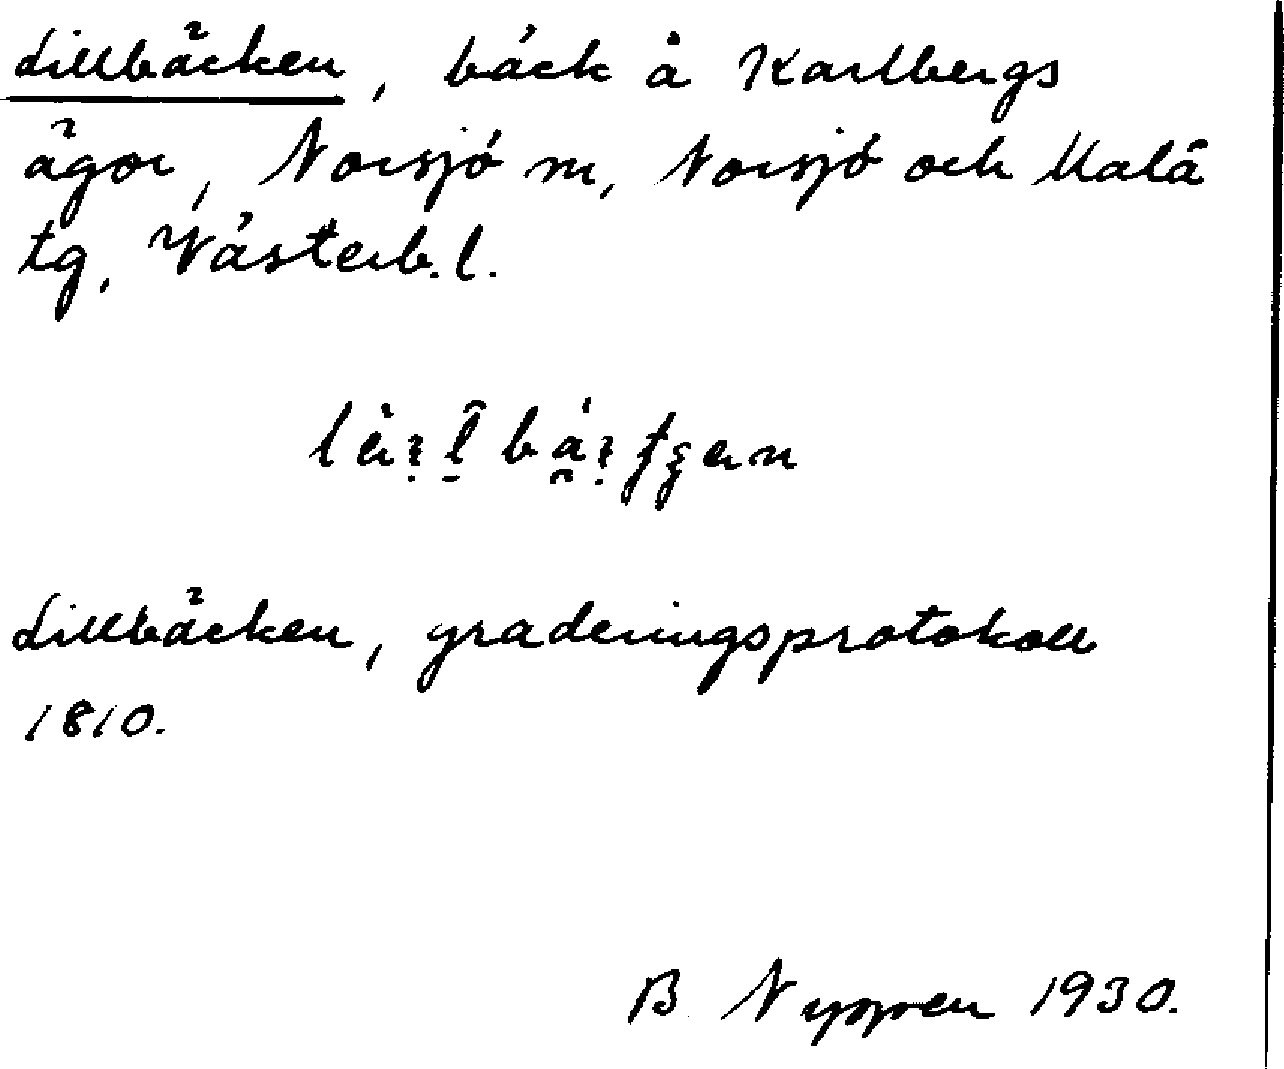 Lillbäcken, bäck å Karlbergs
ägor, Norsjö sn, Norsjö och Malå
tg, Västerb.l.
Lillbäcken, graderingsprotokoll
1810.
B Nyspren 1930.